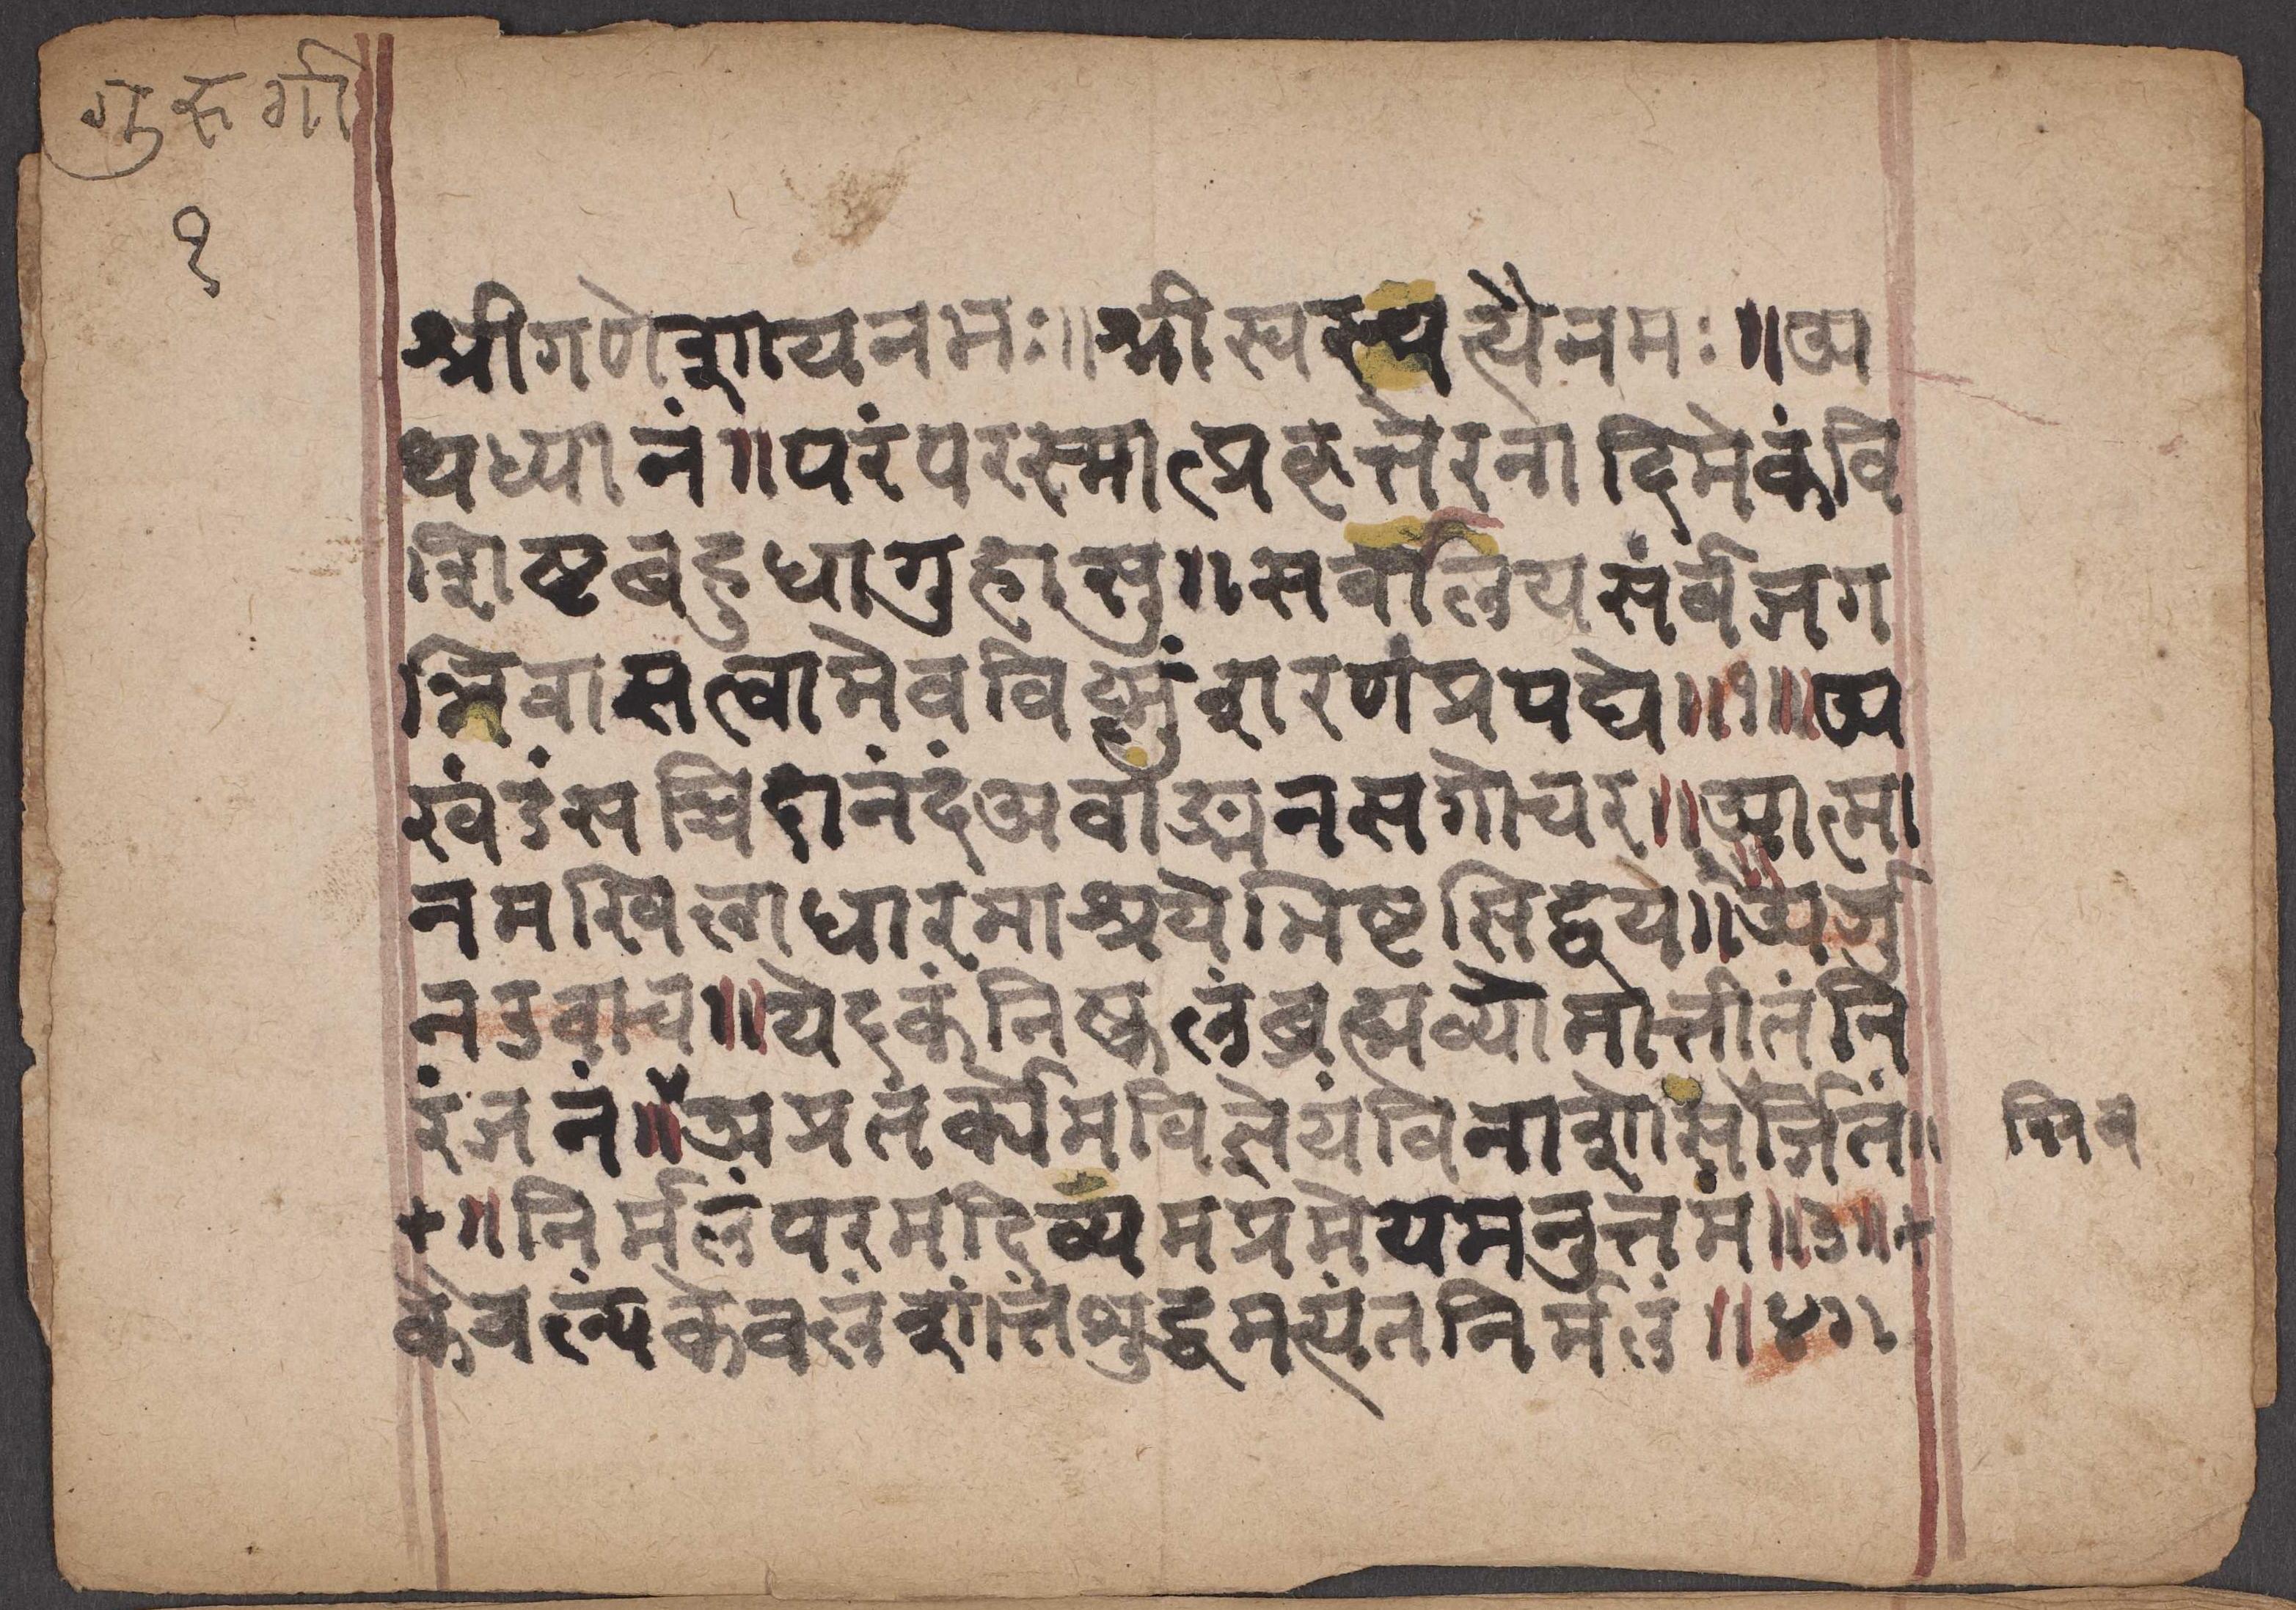 गुरुगी
१
श्रीगणेशायनमः॥श्रीस्वस्वत्यैनमः॥अ
थध्यानं॥परंपरस्मात्प्रकृत्तेरनादिमेकंवि
शिष्टबहुधागुहासु॥सर्वालयसंर्वजग
न्निवासत्वामेवविष्णुंशरणंप्रपद्ये॥१॥अ
खंडंसच्चिदानंदंअवाङ्मनसगोचर॥आत्मा
नमखिलाधारमाश्रयेभिष्टसिद्धये॥अर्जु
नउवाच॥येदकंनिष्कलंब्रह्मव्योमात्तीतंनि
रंजनं॥अप्रतर्क्यमवित्तेयंविनाशोसर्जितं॥
+॥निर्मलंपरमंदिव्यमप्रमेयमनुत्तमं॥३॥+
केवल्यंकेवलंशांत्तंशुद्धमत्यंतनिर्मलं॥४॥